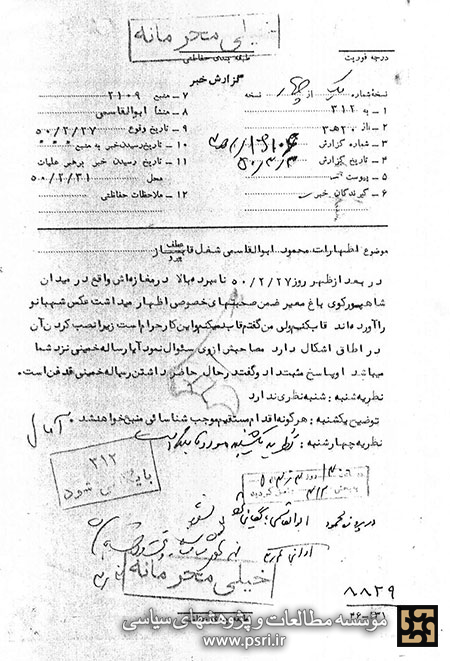 خیلی محرمانه
طبقه بندی حفاظتی
درجه فوریت
گزارش خبر
نسخه شماره یک از چهار نسخه
۱ – به ۳۱۲
۲ – از ۲۰ﻫ۳
۳ – شماره گزارش
۴ – تاریخ گزارش
۵ – پیوست
۶ – گیرندگان خبر
۷ – منبع ۲۱۰۹
۸ – منشا ابوالقاسمی
۹ – تاریخ وقوع ۵۰/۲/۲۷
۱۰ – تاریخ رسیدن خبر به منبع
۱۱ – تاریخ رسیدن خبر برهبر عملیات
محل ۵۰/۲/۳۱
۱۲ – ملاحظات حفاظتی
موضوع اظهارات محمود ابوالقاسمی شغل قابساز
عطف
پیرو
در بعد از ظهر روز ۵۰/۲/۲۷ نامبرده بالا در مغازه‌اش واقع در میدان
شاهپور کوی باغ معیر ضمن صحبتهای خصوصی اظهار میداشت عکس شهبانو
را آورده‌اند قاب کنیم ولی من گفتم قاب نمیکنم و این کار حرام است زیرا نصب کردن آن
در اطاق اشکال دارد مصاحبش از وی سئوال نمود آیا رساله خمینی نزد شما
میباشد او پاسخ مثبت داد و گفت در حال حاضر داشتن رساله خمینی قدغن است.
نظریه شنبه : شنبه نظری ندارد
توضیح یکشنبه : هرگونه اقدام مستقیم موجب شناسائی منبع خواهد شد .
نظریه چهارشنبه : نظریه یکشنبه مورد تائید است
۳۱۲
بایگانی شود
خیلی محرمانه
طبقه بندی حفاظتی
۸۸۲۹
مؤسسه مطالعات و پژوهشهای سیاسی
www.psri.ir